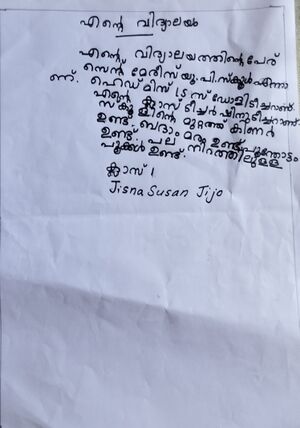 എന്റെ വിദ്യാലയം
എന്റെ വിദ്യാലയത്തിന്റെ പേര്
സെന്റ് മേരീസ് യു.പി.സ്കൂൾ എന്നാ
ണ്. ഹെഡ്മിസ്ട്രസ് ഡോളിടീച്ചറാണ്
എന്റെ ക്ലാസ് ടീച്ചർ ഷിനുടീച്ചറാണ്
സ്കൂളിന്റെ മുറ്റത്ത് കിണർ
ഉണ്ട്. ബദാം മരം ഉണ്ട് പൂന്തോട്ടം
ഉണ്ട് പല നിറത്തിലുള്ള
പൂക്കൾ ഉണ്ട്.
ക്ലാസ് 1
Jisna Susan Jijo